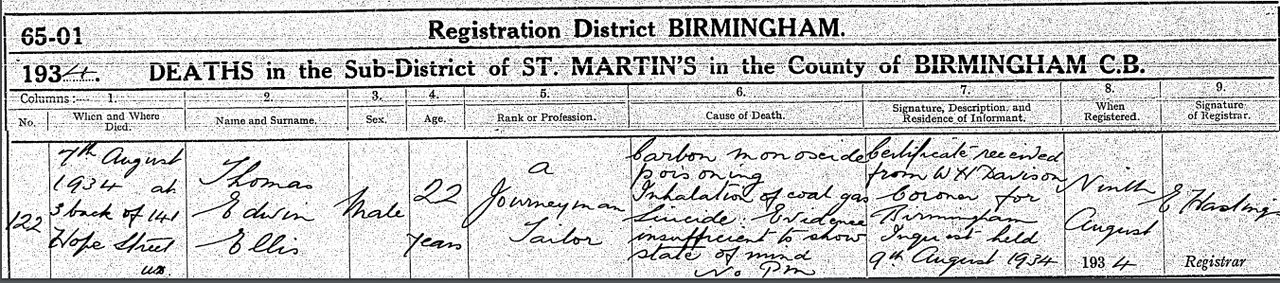 65-01
Registration District BIRMINGHAM.
1934. DEATHS in the Sub-District of ST. MARTIN'S in the County of BIRMINGHAM C.B.
Columns :— 1. 2. 3. 4. 5. 6. 7. 8. 9.
No. When and Where Died. Name and Surname. Sex. Age. Rank or Profession. Cause of Death. Signature, Description, and Residence of Informant. When Registered. Signature of Registrar.
122
7th August
1934 at
3 back of 141
Hope Street
Thomas
Edwin
Ellis
Male
22
years
a
Journeyman
Tailor
Carbon monoxide
poisoning
Inhalation of coal gas
Suicide. Evidence
insufficient to show
state of mind
No P.m
Certificate received
from W H Davison
Coroner for
Birmingham
Inquest held
9th August 1934
Ninth
August
1934
E Hasting
Registrar